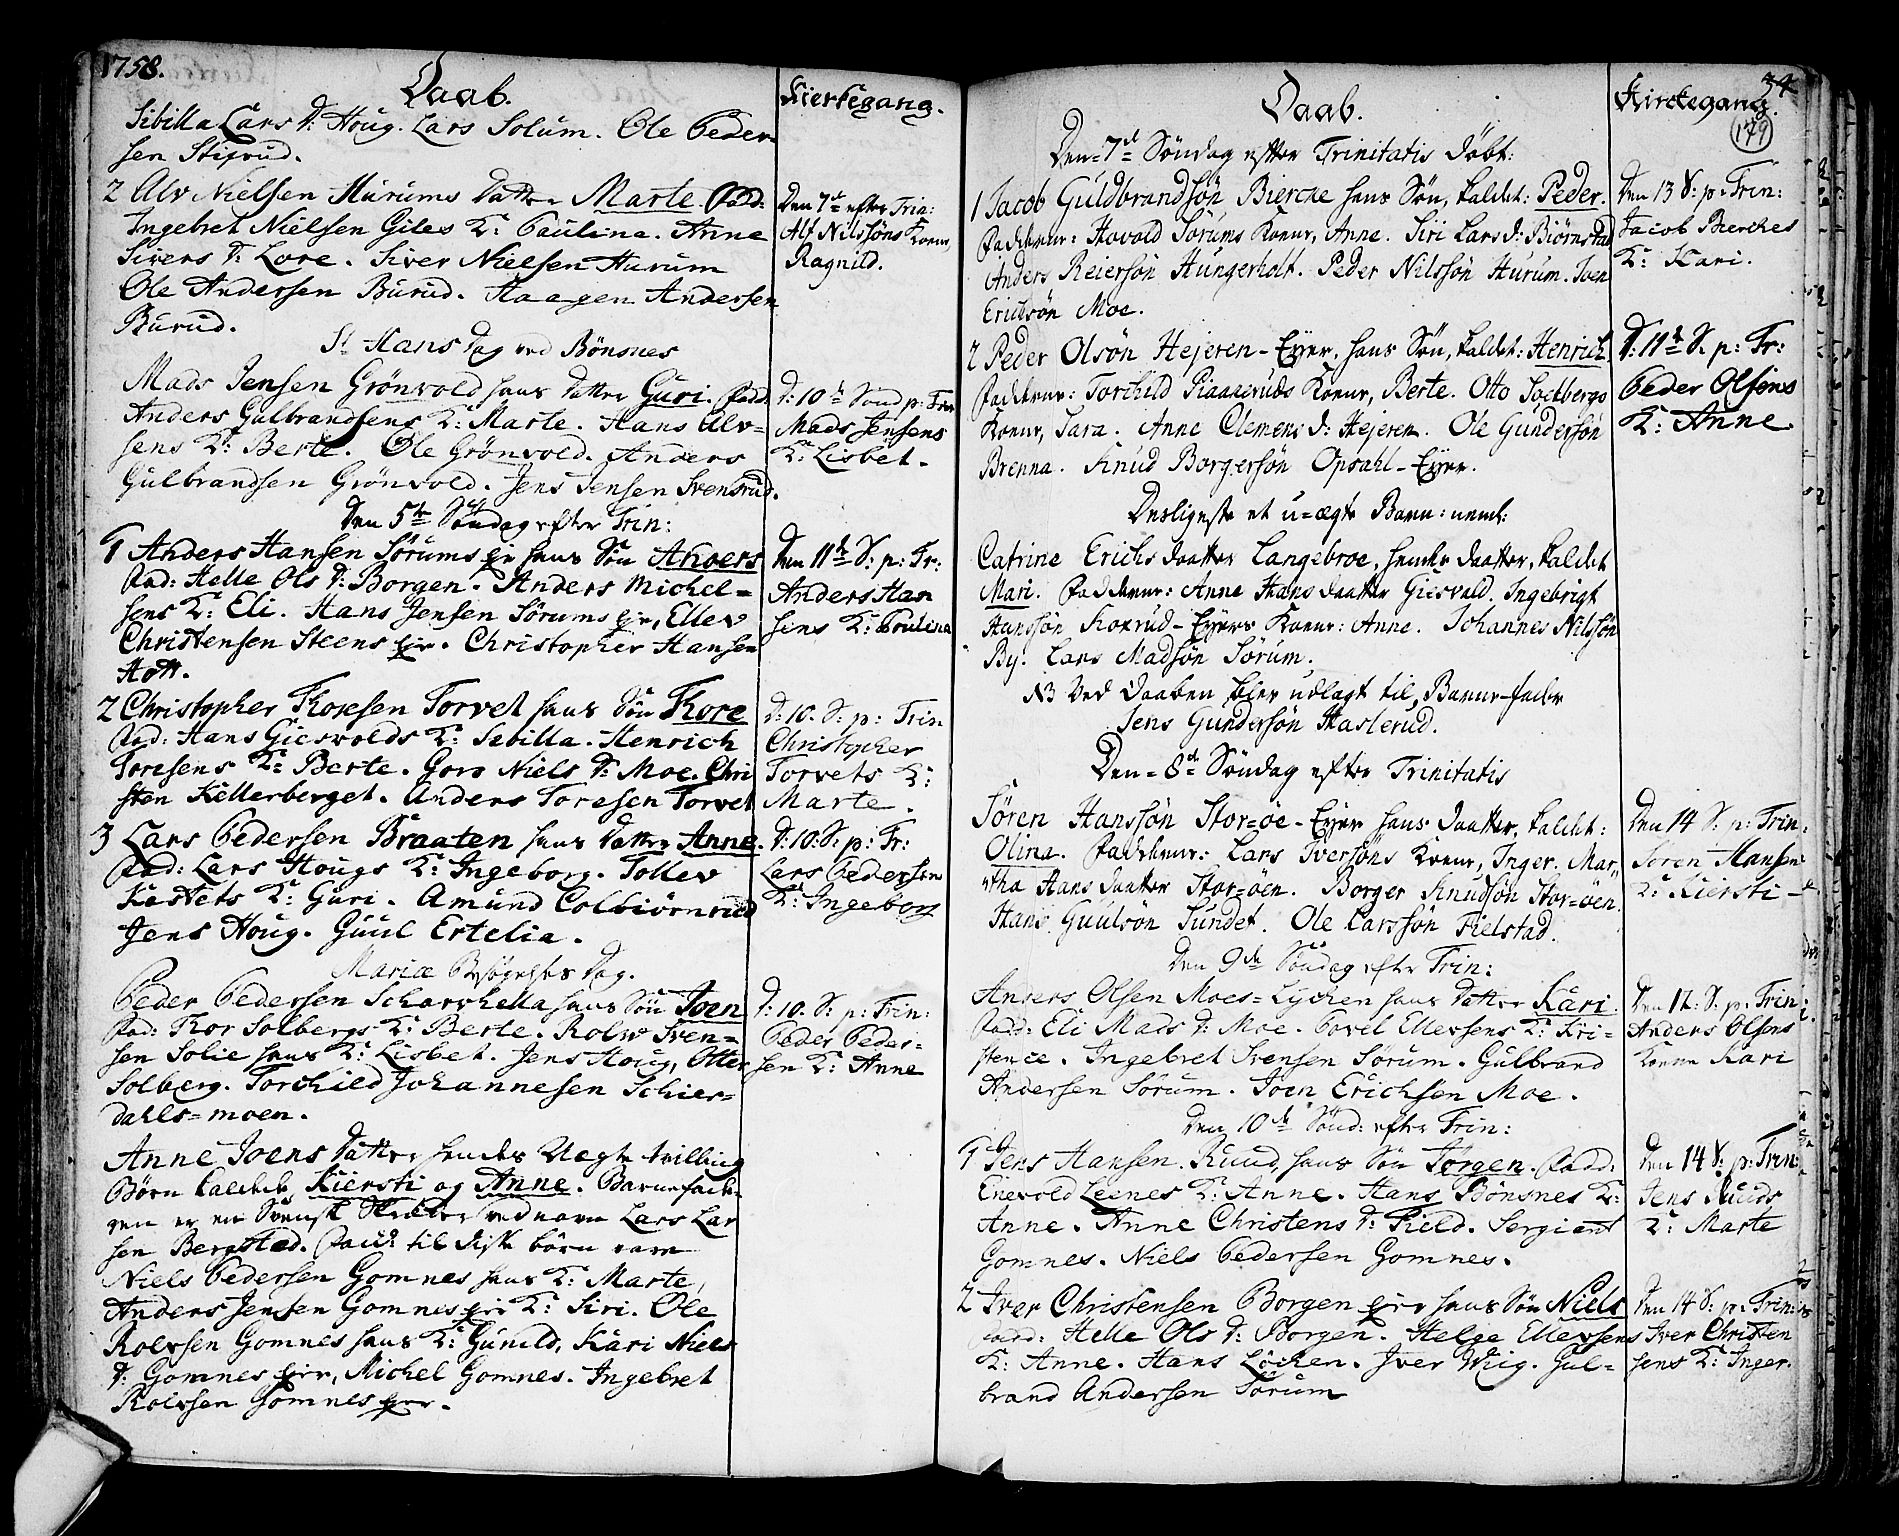 1758.
Daab.
Kierkegang.
Sibilla Lars D: Houg. Lars Solum. Ole Peder-
sen Stixrud.
2 Alv Nielsen Hurums Datter Marte. Fadd:
Ingebret Nielsen Giles K: Paulina. Anne
Sivers D: Lore. Siver Nielsen Hurum
Ole Andersen Burud. Haagen Andersen
Burud.
Den 7de efter Trin:
Alf Nilssöns Kone,
Ragnild.
St Hans Dag ved Bönsnes
Mads Jensen Grönvold hans Datter Guri. Fadd:
Anders Gulbrandsens K: Marte. Hans Alv-
sens K: Berte. Ole Grönvold. Anders
Gulbrandsen Grönvold. Jens Jensen Svensrud.
D: 10de Sönd p: Trin
Mads Jensens
K: Lisbet.
Den 5te Söndag efter Trin:
1 Anders Hansen Sörums eje hans Sön Anders
Fad: Helle Ols D: Borgen. Anders Michel-
sens K: Eli. Hans Jensen Sörums eje, Ellev
Christensen Steens eje. Christopher Hansen
Hott.
Den 11de S: p: Tr:
Anders Han
sens K: Poulina
2 Christopher Thoresen Torvet hans Sön Thore
Fad: Hans Giesvolds K: Sebilla. Henrich
Toresens K: Berte. Goro Niels D: Moe. Chri
sten Kellerberget. Anders Toresen Torvet
D: 10. S: p: Trin
Christopher
Torvets K:
Marte.
3 Lars Pedersen Braaten hans Datter Anne.
Fad: Lars Hougs K: Ingeborg. Tollev
Kestets K: Guri. Amund Colbiörnrud
Jens Houg. Guul Ertelia.
D: 10: S: p: Tr:
Lars Pedersen
K: Ingeborg
Mariæ Besögelses Dag.
Peder Pedersen Scharvhella hans Sön Joen
Fad: Thor Solbergs K: Berte. Rolv Sven-
sen Solie hans K: Lisbet. Jens Houg, Otter
Solberg. Torchild Johannesen Schier-
dahls-moen.
D: 10. S: p: Trin:
Peder Peder-
sen K: Anne
Anne Joens Datter hendes Uægte tvilling
Börn kaldede Kiersti og Anne. Barnefade-
ren er en Svensk Skræder ved navn Lars Lar
sen Bergsted. Fadd: til disse börn vare
Niels Pedersen Gomnes hans K: Marte,
Anders Jensen Gomnes eje K: Siri. Ole
Rolvsen Gomnes hans K: Gunild, Kari Niels
D: Gomnes eje, Michel Gomnes. Ingebret
Rolvsen Gomnes eje.
34
179
Daab.
Kirckegang.
Den 7de Söndag efter Trinitatis döbt:
1 Jacob Guldbrandsön Biercke hans Sön, kaldet: Peder.
Fadderne: Hovold Sörums Kone, Anne. Siri Lars D: Biörnstad
Anders Reiersön Hungerholt. Peder Nilssön Hurum. Joen
Ericksön Moe.
Den 13 S: p: Trin:
Jacob Bierckes
K: Kari.
2 Peder Olsön Hejeren-Ejer, hans Sön, kaldet: Henrich
Fadderne: Torchild Piaaseruds Kone, Berte. Otto Solbergs
Kone, Sara. Anne Clemens D: Hejeren. Ole Gundersön
Brenna. Knud Borgersön Opsahl-Ejer.
D: 11te S. p: Tr:
Peder Olsens
K: Anne
Desligeste et u-ægte Barn: neml:
Catrine Erichs Daatter Langebroe, hendes Daatter, kaldet
Mari. Fadderne: Anne Hans Daatter Giesvold. Ingebrigt
Hanssön Koxrud-Ejers Kone: Anne. Johannes Nilssön
By. Lars Madsön Sörum.
NB Ved Daaben blev udlagt til Barne-fader
Jens Gundersön Haslerud.
Den 8de Söndag efter Trinitatis
Sören Hanssön Stor-öe-Ejer hans Daatter, kaldet:
Olina. Fadderne: Lars Iversöns Kone, Inger. Mar-
tha Hans Daatter Stor-öen. Borger Knudsön Stor-öen.
Hans Guulsön Sundet. Ole Larssön Fielstad.
Den 14 S: p: Trin:
Sören Hansens
K: Kiersti
Den 9de Söndag efter Trin:
Anders Olsen Moes-Lycken hans Datter Kari.
Fadd: Eli Mads D: Moe. Povel Ellevsens K: Kri-
stence. Ingebret Svensen Sörum. Gulbrand
Andersen Sörum. Joen Erichsen Moe.
Den 12: S: p: Trin:
Anders Olsens
Kone Kari
Den 10de Sönd: efter Trin:
1 Jens Hansen Ruud, hans Sön Jörgen. Fadd:
Enevold Leenes K: Anne. Hans Bönsnes K:
Anne. Anne Christens D: Field. Sergiant
Gomnes. Niels Pedersen Gomnes.
Den 14 S: p: Trin:
Jens Ruuds
K: Marte
2 Iver Christensen Borgen eje hans Sön Niels
Fadd: Helle Ols D: Borgen. Helge Ellevsens
K: Anne. Hans Löcken. Iver Wiig. Gul-
brand Andersen Sörum
Den 14 S: p: Trin:
Iver Christen
sens K: Inger.